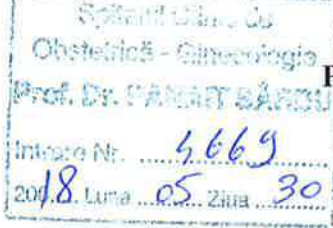 Spitalul Clinic de
Obstetrică - Ginecologie
Prof. Dr. PANAIT SÂRBU
P
Intrare Nr. ........ 4669
2018 Luna 05 Ziua 30